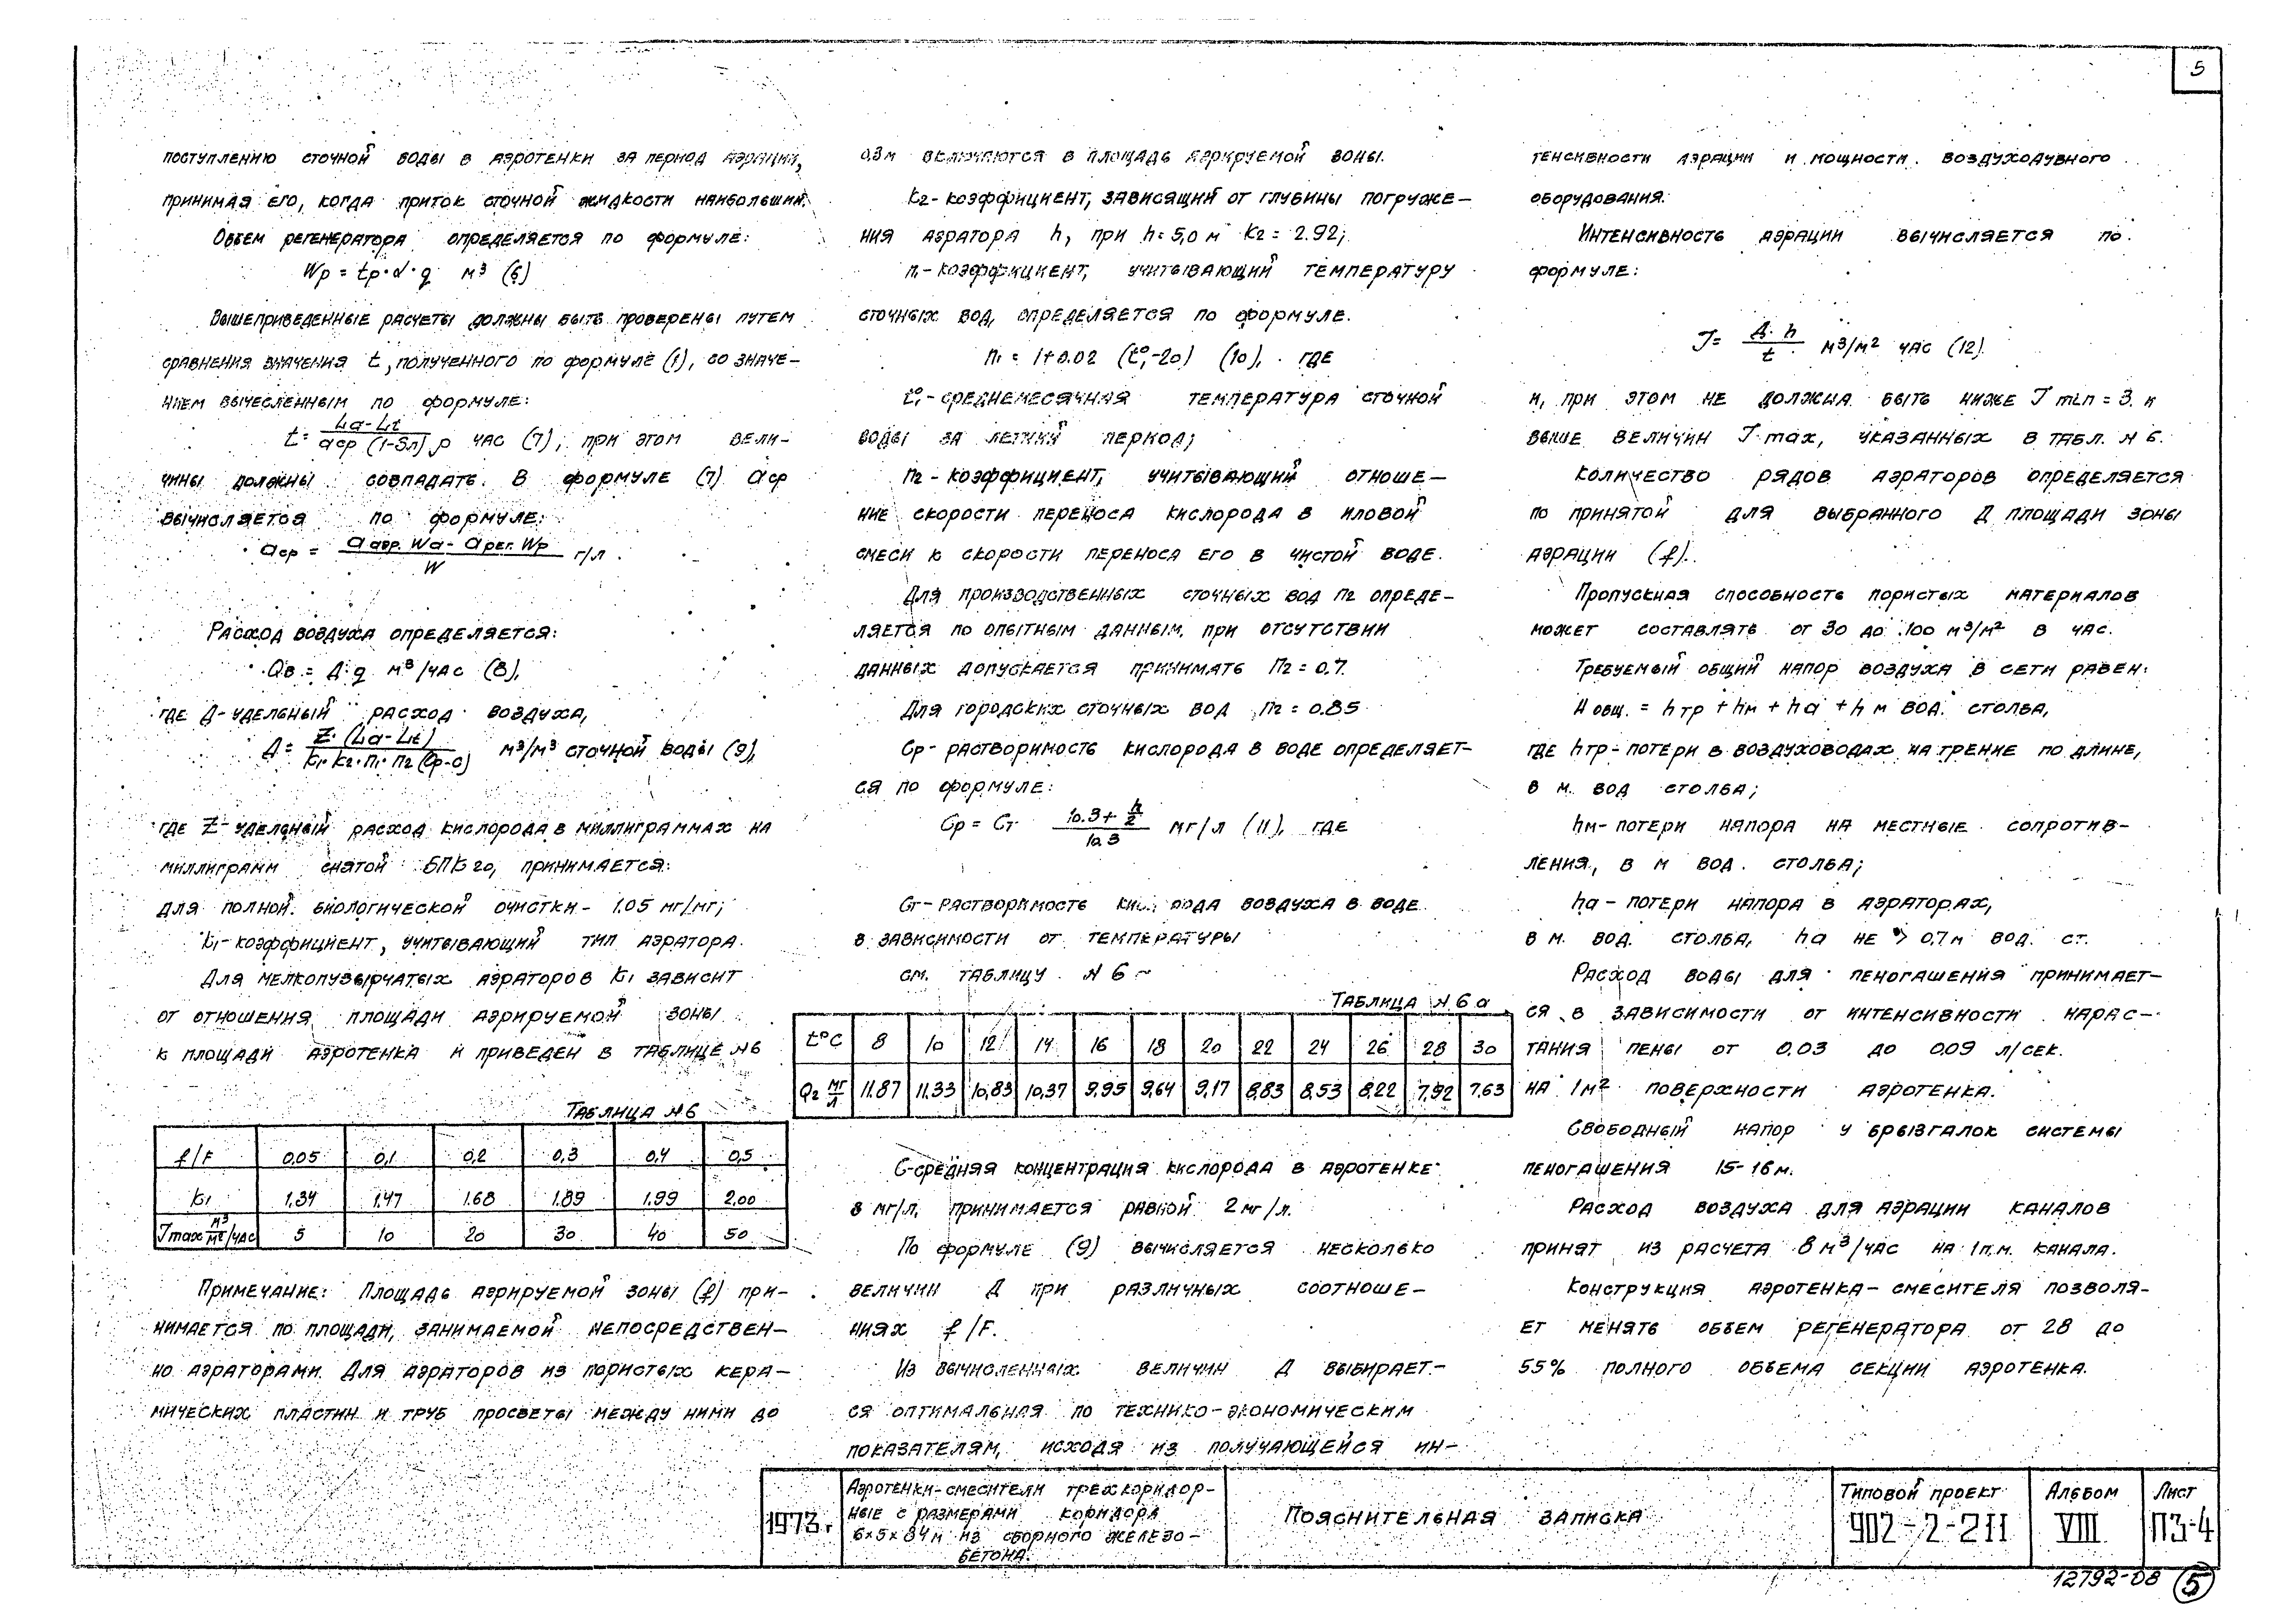 5
поступлению сточной воды в аэротенки за период аэрации,
принимая его, когда приток сточной жидкости наибольший.
Объем регенератора определяется по формуле:
Wp = tp·α·q м³ (6)
Вышеприведенные расчеты должны быть проверены путем
сравнения значения t, полученного по формуле (1), со значе-
нием вычесленным по формуле:
t = (La-Lt) / (aср (1-Sл) ρ) час (7), при этом вели-
чины должны совпадать. В формуле (7) aср
вычисляется по формуле:
aср = (aаэр. Wa - aрег. Wp) / W г/л.
Расход воздуха определяется:
Qв = Д·q м³/час (8),
где Д-удельный расход воздуха,
Д = Z·(La-Lt) / (k1·k2·n1·n2 (Cp-c)) м³/м³ сточной воды (9),
где Z-удельный расход кислорода в миллиграммах на
миллиграмм снятой БПК20, принимается:
для полной биологической очистки- 1.05 мг/мг;
k1-коэффициент, учитывающий тип аэратора.
Для мелкопузырчатых аэраторов k1 зависит
от отношения площади аэрируемой зоны
к площади аэротенка и приведен в таблице №6
Таблица №6
f/F 0,05 0,1 0,2 0,3 0,4 0,5
k1 1.34 1.47 1.68 1.89 1.99 2,00
Jmax м³/м²/час 5 10 20 30 40 50
Примечание: Площадь аэрируемой зоны (f) при-
нимается по площади, занимаемой непосредствен-
но аэраторами. Для аэраторов из пористых кера-
мических пластин и труб просветы между ними до
0.3м включаются в площадь аэрируемой зоны.
k2-коэффициент, зависящий от глубины погруже-
ния аэратора h, при h=5,0 м k2 = 2.92;
n1-коэффициент, учитывающий температуру
сточных вод, определяется по формуле.
n1 = 1+0.02 (t°1-20) (10), где
t°1-среднемесячная температура сточной
воды за летний период;
n2-коэффициент, учитывающий отноше-
ние скорости переноса кислорода в иловой
смеси к скорости переноса его в чистой воде.
Для производственных сточных вод n2 опреде-
ляется по опытным данным, при отсутствии
данных допускается принимать n2 = 0.7.
Для городских сточных вод n2 = 0.85
Cp- растворимость кислорода в воде определяет-
ся по формуле:
Cp = Cт (10.3 + h/2) / 10.3 мг/л (11), где
Cт-растворимость кислорода воздуха в воде
в зависимости от температуры
см. таблицу №6~
Таблица №6а
t°C 8 10 12 14 16 18 20 22 24 26 28 30
Q2 мг/л 11.87 11.33 10,83 10,37 9,95 9,64 9,17 8,83 8,53 8,22 7,92 7,63
C-средняя концентрация кислорода в аэротенке
в мг/л, принимается равной 2 мг/л.
По формуле (9) вычисляется несколько
величин Д при различных соотноше-
ниях f/F.
Из вычисленных величин Д выбирает-
ся оптимальная по технико-экономическим
показателям, исходя из получающейся ин-
тенсивности аэрации и мощности воздуходувного
оборудования.
Интенсивность аэрации вычисляется по
формуле:
J = Д·h / t м³/м² час (12)
и, при этом не должна быть ниже J min = 3 и
выше величин J max, указанных в табл. №6.
Количество рядов аэраторов определяется
по принятой для выбранного Д площади зоны
аэрации (f).
Пропускная способность пористых материалов
может составлять от 30 до 100 м³/м² в час.
Требуемый общий напор воздуха в сети равен:
Н общ. = hтр + hм + ha + h м вод. столба,
где hтр-потери в воздуховодах на трение по длине,
в м. вод столба;
hм-потери напора на местные сопротив-
ления, в м вод. столба;
ha - потери напора в аэраторах,
в м. вод. столба, ha не > 0,7м вод. ст.
Расход воды для пеногашения принимает-
ся в зависимости от интенсивности нарас-
тания пены от 0.03 до 0.09 л/сек.
на 1м² поверхности аэротенка.
Свободный напор у брызгалок системы
пеногашения 15-16м.
Расход воздуха для аэрации каналов
принят из расчета 8 м³/час на 1п.м. канала.
Конструкция аэротенка-смесителя позволя-
ет менять объем регенератора от 28 до
55% полного объема секции аэротенка.
1973г
Аэротенки-смесители трехкоридор-
ные с размерами коридора
6×5×84м из сборного железо-
бетона.
Пояснительная записка
Типовой проект
902-2-211
Альбом
VIII
Лист
ПЗ-4
12792-08 5